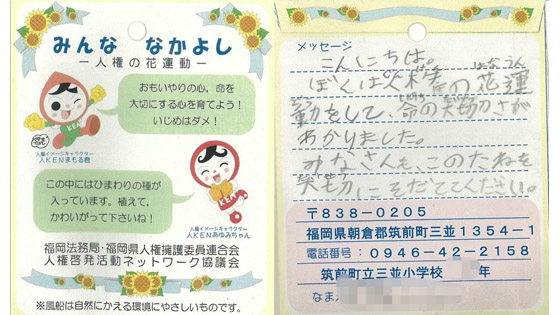 みんな なかよし
－人権の花運動－
おもいやりの心,命を
大切にする心を育てよう!
いじめはダメ!
KEN
人権イメージキャラクター
人KENまもる君
この中にはひまわりの種が
入っています。植えて、
かわいがって下さいね!
KEN
人権イメージキャラクター
人KENあゆみちゃん
福岡法務局・福岡県人権擁護委員連合会
人権啓発活動ネットワーク協議会
※風船は自然にかえる環境にやさしいものです。
メッセージ
こんにちは。
ぼくは人権の花運
はなうん
動をして、命の大切さが
わかりました。
みなさんも、このたねを
大切にそだててください。
〒838-0205
福岡県朝倉郡筑前町三並1354-1
電話番号：0946-42-2158
筑前町立三並小学校 年
なま